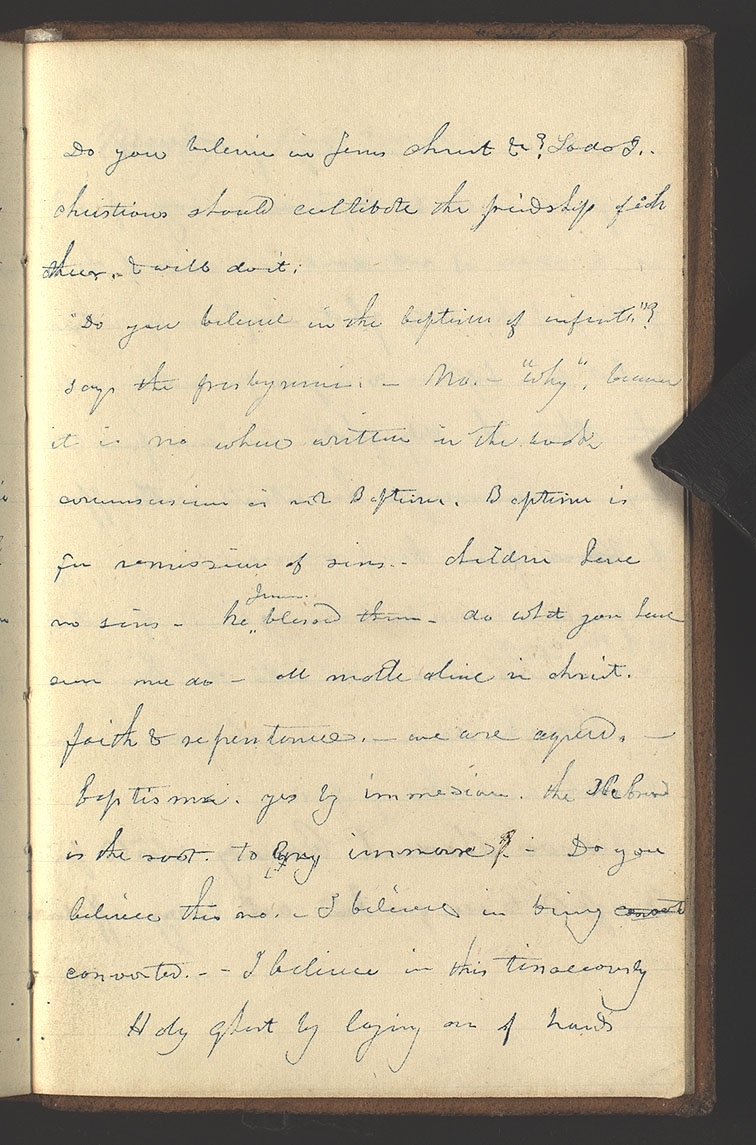 Do you believe in Jesus Christ &c? So do I..
christians should cultibate the friendship of each
other. & will do it;
"Do you believe in the baptism of infants."?
says the presbyterian. – No. – "Why", because
it is no where written in the book
circumscision is not Baptism. Baptism is
for remission of sins. – children have
no sins – he Jesus blessed them – do what you have
seen me do – all made alive in christ.
faith & repentance. – we are agreed. –
baptism. yes by immersion. the Hebrew
is the root. to bury immerse?. – Do you
believe this no. – I believe in being
converted. – – I believe in this tinaceously
Holy ghost by laying on of hands